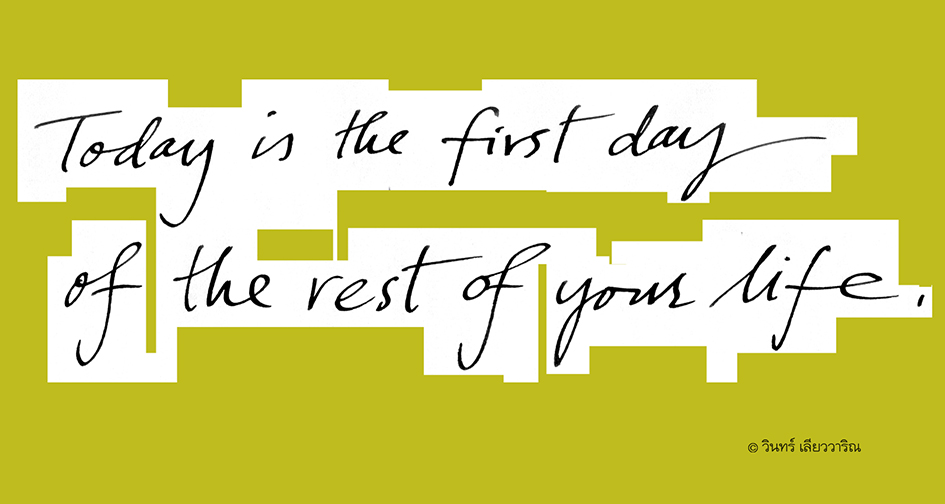 Today is the first day
of the rest of your life.
© วินทร์ เลียววาริณ